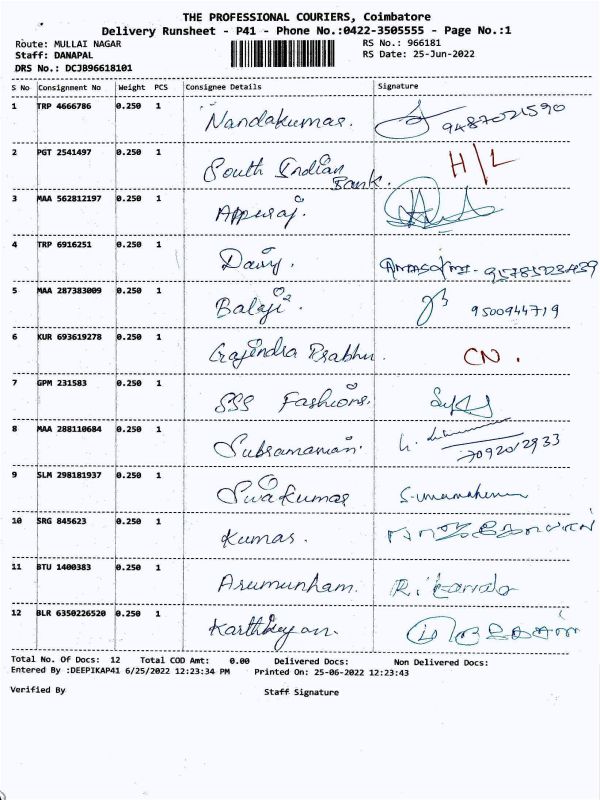 THE PROFESSIONAL COURIERS, Coimbatore
Delivery Runsheet - P41 - Phone No.:0422-3505555 - Page No.:1
Route: MULLAI NAGAR RS No.: 966181
Staff: DANAPAL RS Date: 25-Jun-2022
DRS No.: DCJB96618101
S No Consignment No Weight PCS Consignee Details Signature
1 TRP 4666786 0.250 1 Nandakumar. 9487021590
2 PGT 2541497 0.250 1 South Indian Bank. H/L
3 MAA 562812197 0.250 1 Appuraj.
4 TRP 6916251 0.250 1
5 MAA 287383009 0.250 1 Balaji. 9500944719
6 KUR 693619278 0.250 1 Gajendra Prabhu. CN.
7 GPM 231583 0.250 1 SSS Fashions.
8 MAA 288110684 0.250 1 Subramanian. 7092012933
9 SLM 298181937 0.250 1 Sivakumar S. umamahes
10 SRG 845623 0.250 1 Kumar.
11 BTU 1400383 0.250 1 Arumunham.
12 BLR 6350226520 0.250 1 Karthikeyan.
Total No. Of Docs: 12 Total COD Amt: 0.00 Delivered Docs: Non Delivered Docs:
Entered By :DEEPIKAP41 6/25/2022 12:23:34 PM Printed On: 25-06-2022 12:23:43
Verified By Staff Signature